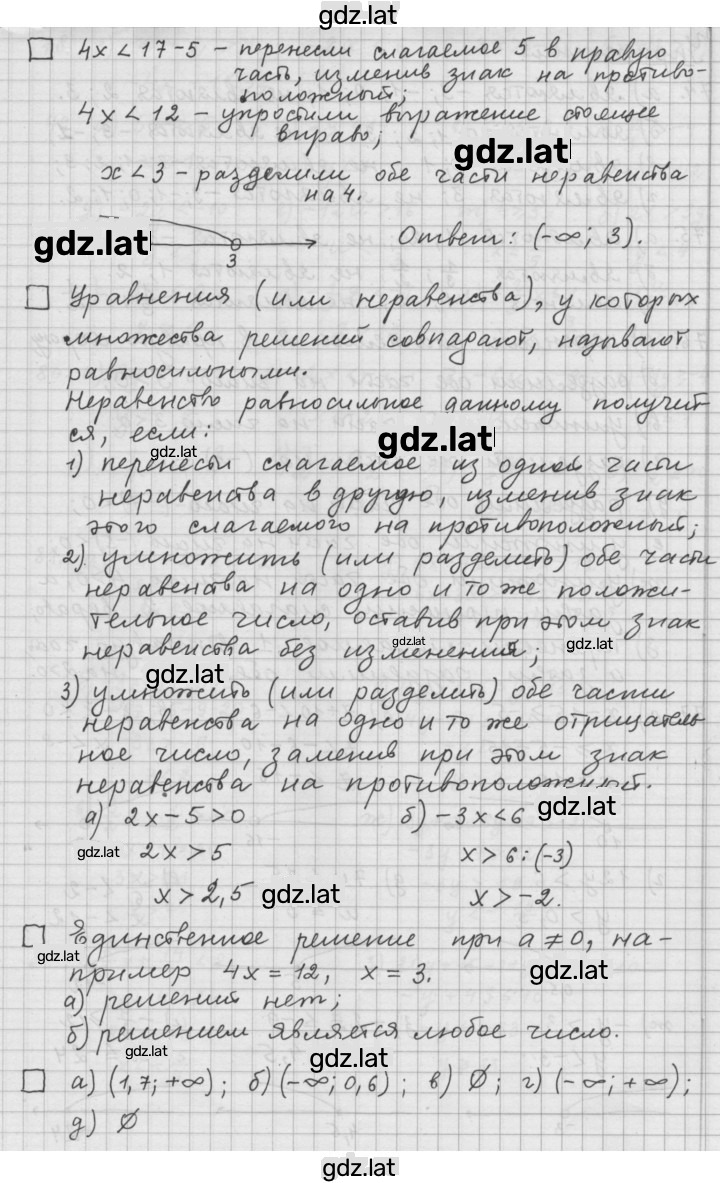 gdz.lat
4x < 17-5 - перенесли слагаемое 5 в правую
часть, изменив знак на противо-
положный;
4x < 12 - упростили выражение стоящее
вправо;
gdz.lat
x < 3 - разделили обе части неравенства
на 4.
gdz.lat
3
Ответ: (-∞; 3).
Уравнения (или неравенства), у которых
множества решений совпадают, называют
равносильными.
Неравенство равносильное данному получит-
ся, если:
gdz.lat
gdz.lat
1) перенести слагаемое из одной части
неравенства в другую, изменив знак
этого слагаемого на противоположный;
2) умножить (или разделить) обе части
неравенства на одно и то же положи-
тельное число, оставив при этом знак
неравенства без изменений;
gdz.lat
gdz.lat
gdz.lat
3) умножить (или разделить) обе части
неравенства на одно и то же отрицатель-
ное число, заменив при этом знак
неравенства на противоположный.
а) 2x - 5 > 0 б) -3x < 6
gdz.lat
gdz.lat
2x > 5 x > 6 : (-3)
x > 2,5 x > -2.
gdz.lat
Единственное решение при a ≠ 0, на-
gdz.lat
пример 4x = 12, x = 3.
gdz.lat
а) решений нет;
б) решением является любое число.
gdz.lat
gdz.lat
а) (1,7; +∞); б) (-∞; 0,6); в) ∅; г) (-∞; +∞);
д) ∅
gdz.lat